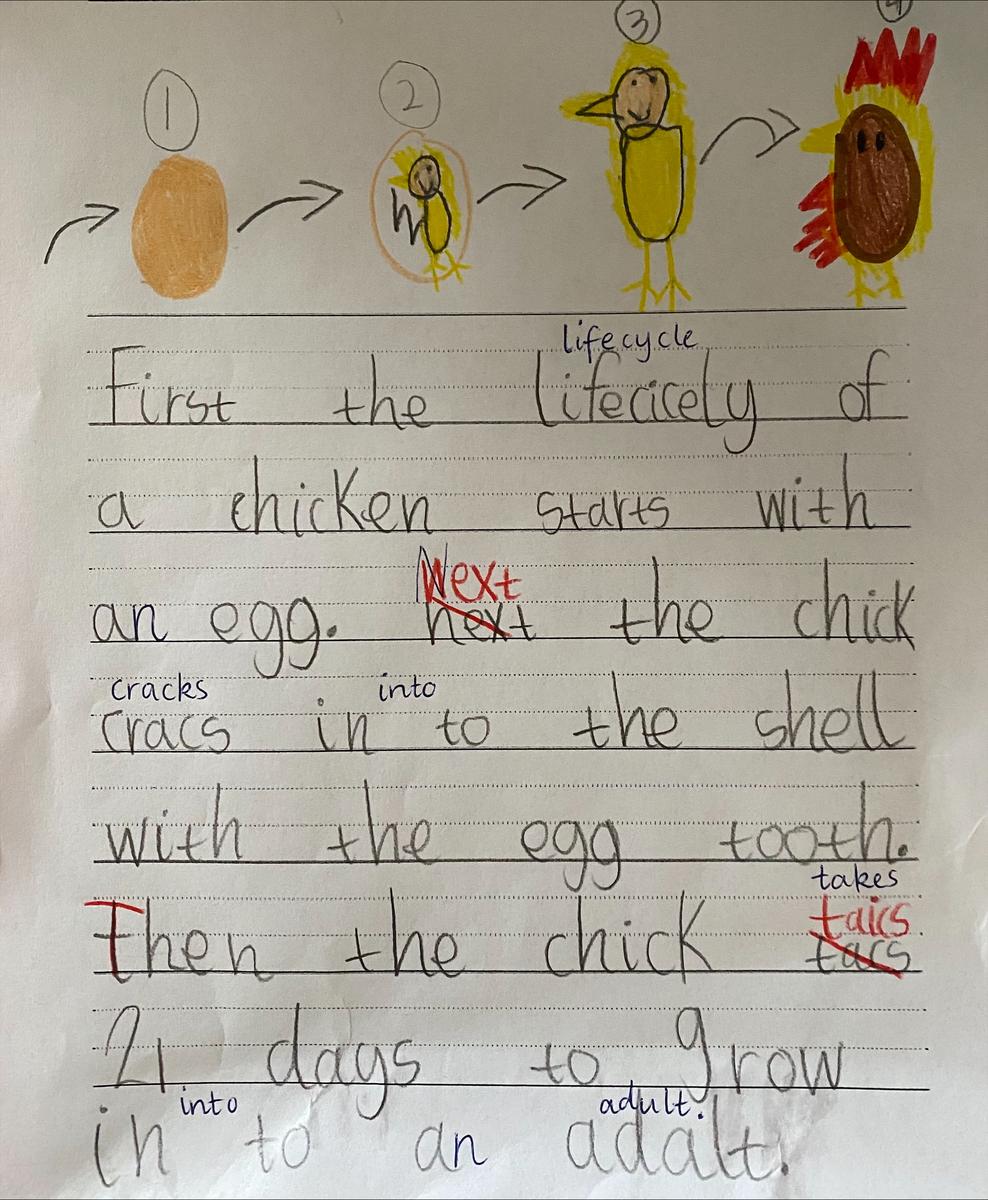 1 2 3 4
lifecycle
First the lifecicely of
a chicken starts with
Next
an egg. next the chick
cracks into
cracs in to the shell
with the egg tooth.
takes
taics
Then the chick tacs
21 days to grow
into adult.
in to an adalt.